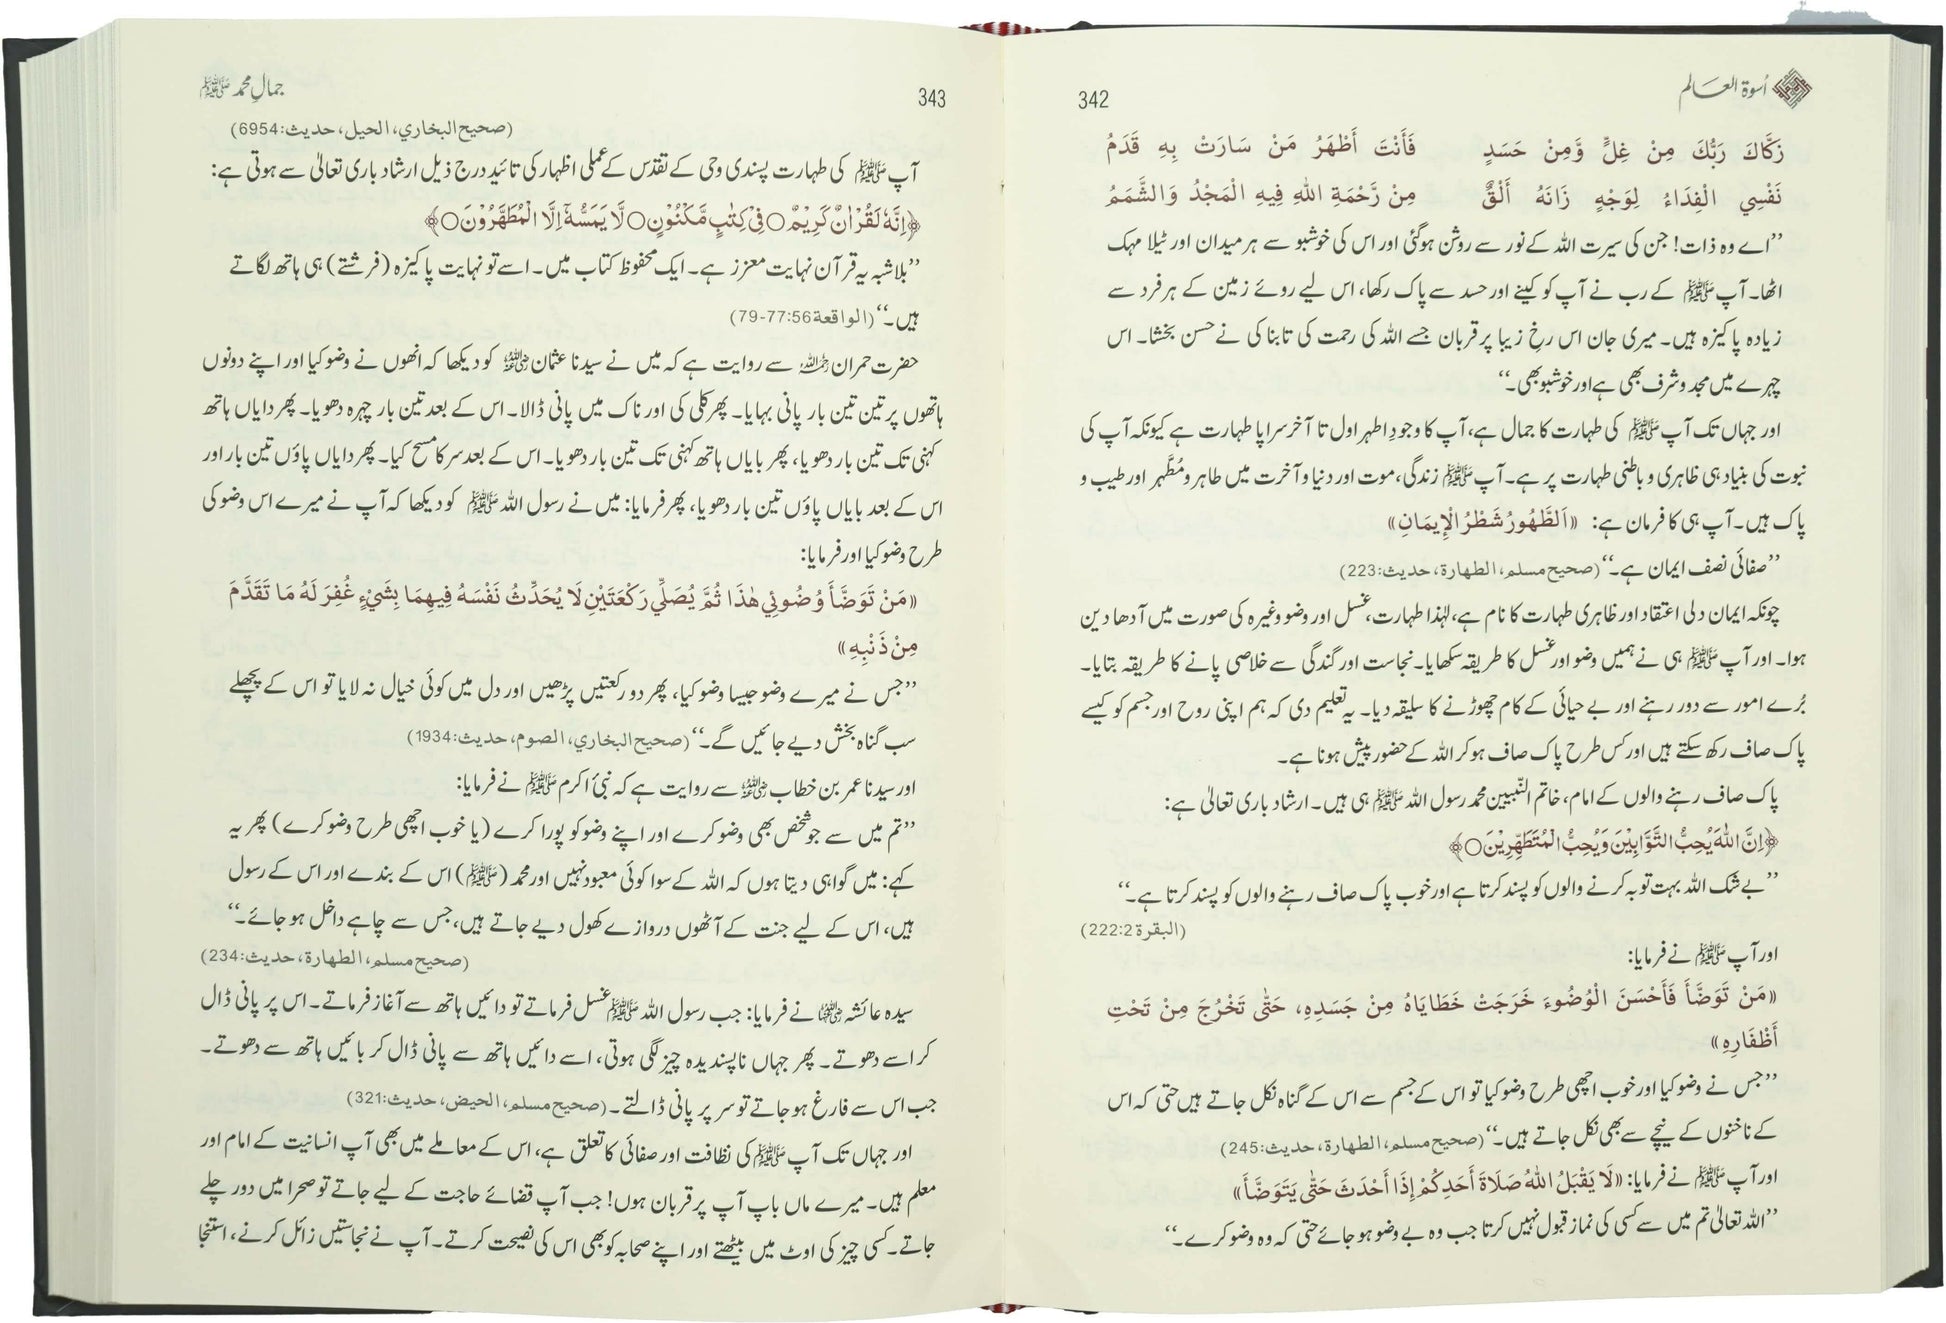 اُسوۃ العالم
342
زَكَّاكَ رَبُّكَ مِنْ غِلٍّ وَّمِنْ حَسَدٍ فَأَنْتَ أَطْهَرُ مَنْ سَارَتْ بِهِ قَدَمُ
نَفْسِي الْفِدَاءُ لِوَجْهٍ زَانَهُ أَلَقٌ مِنْ رَّحْمَةِ اللهِ فِيهِ الْمَجْدُ وَالشَّمَمُ
’’اے وہ ذات! جن کی سیرت اللہ کے نور سے روشن ہوگئی اور اس کی خوشبو سے ہر میدان اور ٹیلا مہک
اٹھا۔ آپ ﷺ کے رب نے آپ کو کینے اور حسد سے پاک رکھا، اس لیے روئے زمین کے ہر فرد سے
زیادہ پاکیزہ ہیں۔ میری جان اس رخِ زیبا پر قربان جسے اللہ کی رحمت کی تابناکی نے حسن بخشا۔ اس
چہرے میں مجد و شرف بھی ہے اور خوشبو بھی۔‘‘
اور جہاں تک آپ ﷺ کی طہارت کا جمال ہے، آپ کا وجودِ اطہر اول تا آخر سراپا طہارت ہے کیونکہ آپ کی
نبوت کی بنیاد ہی ظاہری و باطنی طہارت پر ہے۔ آپ ﷺ زندگی، موت اور دنیا و آخرت میں طاہر و مُطَہر اور طیب و
پاک ہیں۔ آپ ہی کا فرمان ہے: «اَلطَّهُورُ شَطْرُ الْإِيمَانِ»
’’صفائی نصف ایمان ہے۔‘‘ (صحيح مسلم، الطهارة، حديث:223)
چونکہ ایمان دلی اعتقاد اور ظاہری طہارت کا نام ہے، لہٰذا طہارت، غسل اور وضو وغیرہ کی صورت میں آدھا دین
ہوا۔ اور آپ ﷺ ہی نے ہمیں وضو اور غسل کا طریقہ سکھایا۔ نجاست اور گندگی سے خلاصی پانے کا طریقہ بتایا۔
بُرے امور سے دور رہنے اور بے حیائی کے کام چھوڑنے کا سلیقہ دیا۔ یہ تعلیم دی کہ ہم اپنی روح اور جسم کو کیسے
پاک صاف رکھ سکتے ہیں اور کس طرح پاک صاف ہو کر اللہ کے حضور پیش ہونا ہے۔
پاک صاف رہنے والوں کے امام، خاتم النّبیین محمد رسول اللہ ﷺ ہی ہیں۔ ارشاد باری تعالیٰ ہے:
﴿اِنَّ اللّٰهَ يُحِبُّ التَّوَّابِيْنَ وَيُحِبُّ الْمُتَطَهِّرِيْنَ○﴾
’’بے شک اللہ بہت توبہ کرنے والوں کو پسند کرتا ہے اور خوب پاک صاف رہنے والوں کو پسند کرتا ہے۔‘‘
(البقرة 222:2)
اور آپ ﷺ نے فرمایا:
«مَنْ تَوَضَّأَ فَأَحْسَنَ الْوُضُوءَ خَرَجَتْ خَطَايَاهُ مِنْ جَسَدِهِ، حَتّٰى تَخْرُجَ مِنْ تَحْتِ
أَظْفَارِهِ»
’’جس نے وضو کیا اور خوب اچھی طرح وضو کیا تو اس کے جسم سے اس کے گناہ نکل جاتے ہیں حتی کہ اس
کے ناخنوں کے نیچے سے بھی نکل جاتے ہیں۔‘‘ (صحيح مسلم، الطهارة، حديث:245)
اور آپ ﷺ نے فرمایا: «لَا يَقْبَلُ اللهُ صَلَاةَ أَحَدِكُمْ إِذَا أَحْدَثَ حَتّٰى يَتَوَضَّأَ»
’’اللہ تعالیٰ تم میں سے کسی کی نماز قبول نہیں کرتا جب وہ بے وضو ہو جائے حتی کہ وہ وضو کرے۔‘‘
343
جمالِ محمد ﷺ
(صحيح البخاري، الحيل، حديث:6954)
آپ ﷺ کی طہارت پسندی وحی کے تقدس کے عملی اظہار کی تائید درج ذیل ارشاد باری تعالیٰ سے ہوتی ہے:
﴿اِنَّهٗ لَقُرْاٰنٌ كَرِيْمٌ○ فِيْ كِتٰبٍ مَّكْنُوْنٍ○ لَّا يَمَسُّهٗٓ اِلَّا الْمُطَهَّرُوْنَ○﴾
’’بلاشبہ یہ قرآن نہایت معزز ہے۔ ایک محفوظ کتاب میں۔ اسے تو نہایت پاکیزہ (فرشتے) ہی ہاتھ لگاتے
ہیں۔‘‘ (الواقعة 77:56-79)
حضرت حمران رحمہ اللہ سے روایت ہے کہ میں نے سیدنا عثمان رضی اللہ عنہ کو دیکھا کہ انھوں نے وضو کیا اور اپنے دونوں
ہاتھوں پر تین تین بار پانی بہایا۔ پھر کلی کی اور ناک میں پانی ڈالا۔ اس کے بعد تین بار چہرہ دھویا۔ پھر دایاں ہاتھ
کہنی تک تین بار دھویا، پھر بایاں ہاتھ کہنی تک تین بار دھویا۔ اس کے بعد سر کا مسح کیا۔ پھر دایاں پاؤں تین بار اور
اس کے بعد بایاں پاؤں تین بار دھویا، پھر فرمایا: میں نے رسول اللہ ﷺ کو دیکھا کہ آپ نے میرے اس وضو کی
طرح وضو کیا اور فرمایا:
«مَنْ تَوَضَّأَ وُضُوئِي هٰذَا ثُمَّ يُصَلِّي رَكْعَتَيْنِ لَا يُحَدِّثُ نَفْسَهُ فِيهِمَا بِشَيْءٍ غُفِرَ لَهُ مَا تَقَدَّمَ
مِنْ ذَنْبِهِ»
’’جس نے میرے وضو جیسا وضو کیا، پھر دو رکعتیں پڑھیں اور دل میں کوئی خیال نہ لایا تو اس کے پچھلے
سب گناہ بخش دیے جائیں گے۔‘‘ (صحيح البخاري، الصوم، حديث:1934)
اور سیدنا عمر بن خطاب رضی اللہ عنہ سے روایت ہے کہ نبیٔ اکرم ﷺ نے فرمایا:
’’تم میں سے جو شخص بھی وضو کرے اور اپنے وضو کو پورا کرے (یا خوب اچھی طرح وضو کرے) پھر یہ
کہے: میں گواہی دیتا ہوں کہ اللہ کے سوا کوئی معبود نہیں اور محمد (ﷺ) اس کے بندے اور اس کے رسول
ہیں، اس کے لیے جنت کے آٹھوں دروازے کھول دیے جاتے ہیں، جس سے چاہے داخل ہو جائے۔‘‘
(صحيح مسلم، الطهارة، حديث:234)
سیدہ عائشہ رضی اللہ عنہا نے فرمایا: جب رسول اللہ ﷺ غسل فرماتے تو دائیں ہاتھ سے آغاز فرماتے۔ اس پر پانی ڈال
کر اسے دھوتے۔ پھر جہاں ناپسندیدہ چیز لگی ہوتی، اسے دائیں ہاتھ سے پانی ڈال کر بائیں ہاتھ سے دھوتے۔
جب اس سے فارغ ہو جاتے تو سر پر پانی ڈالتے۔ (صحيح مسلم، الحيض، حديث:321)
اور جہاں تک آپ ﷺ کی نظافت اور صفائی کا تعلق ہے، اس کے معاملے میں بھی آپ انسانیت کے امام اور
معلم ہیں۔ میرے ماں باپ آپ پر قربان ہوں! جب آپ قضائے حاجت کے لیے جاتے تو صحرا میں دور چلے
جاتے۔ کسی چیز کی اوٹ میں بیٹھتے اور اپنے صحابہ کو بھی اس کی نصیحت کرتے۔ آپ نے نجاستیں زائل کرنے، استنجا